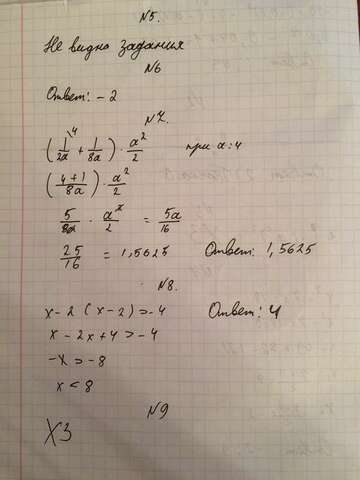 №5.
Не видно задания
№6
Ответ: - 2
№7.
(1/2a + 1/8a) · a²/2 при a=4
(4+1/8a) · a²/2
5/8a · a²/2 = 5a/16
25/16 = 1,5625 Ответ: 1,5625
№8.
x - 2 (x - 2) > -4 Ответ: 4
x - 2x + 4 > -4
-x > -8
x < 8
№9
X3